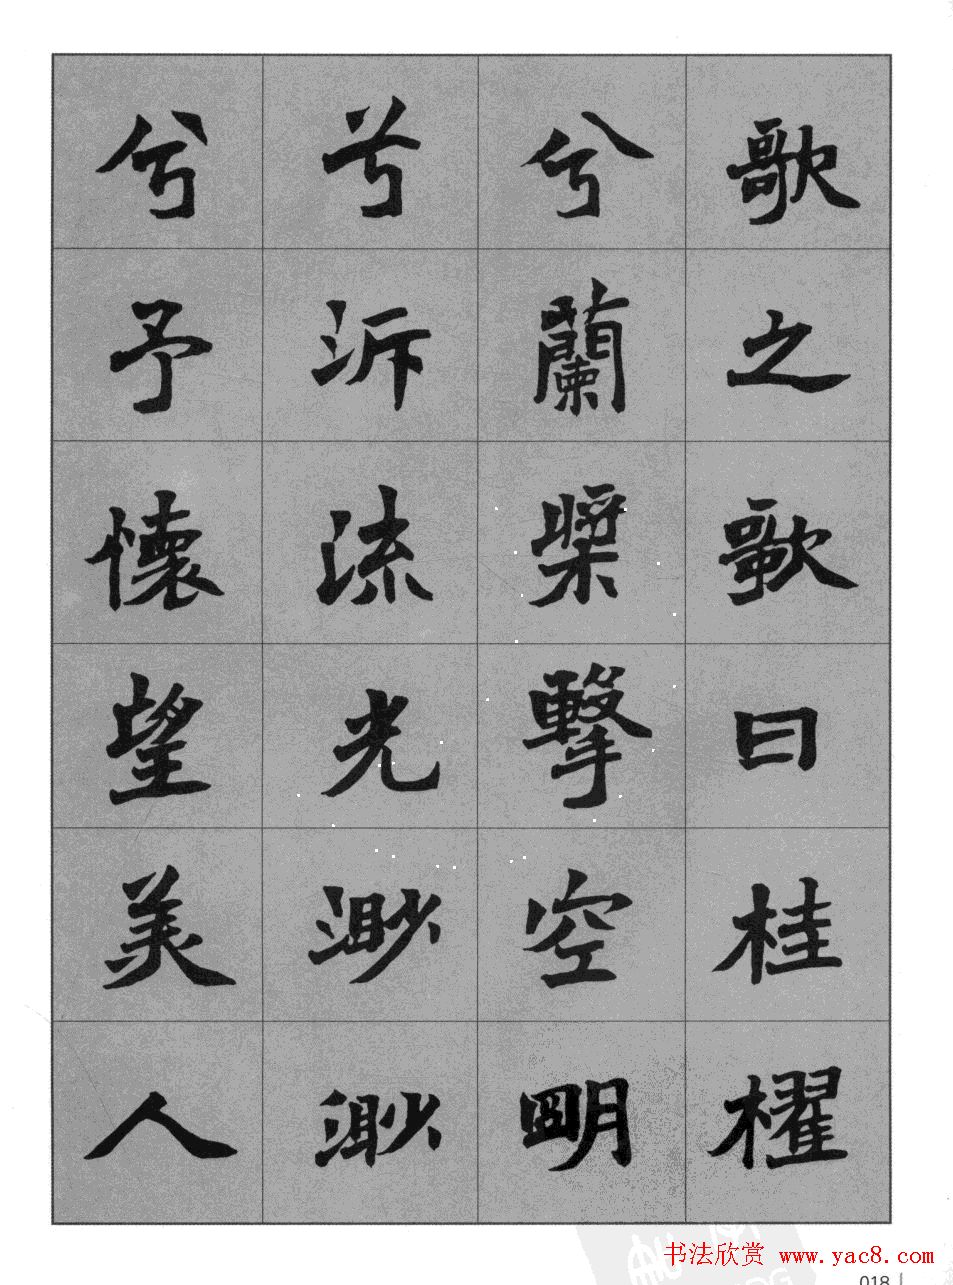 歌之歌曰桂櫂
兮蘭槳擊空明
兮泝流光渺渺
兮予懷望美人
书法欣赏 www.yac8.com
018